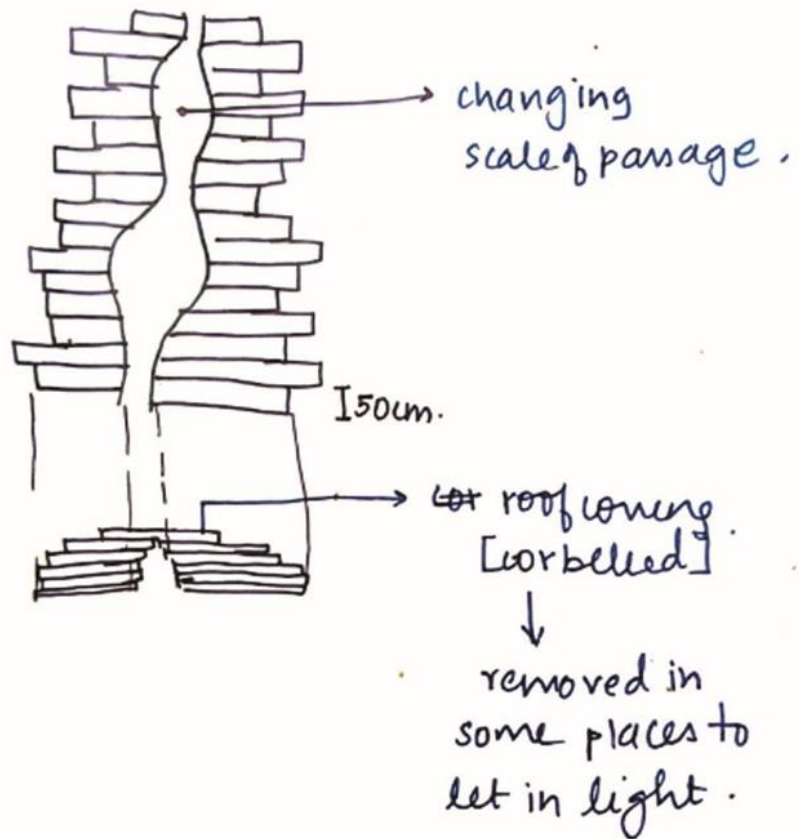 changing
scale of passage.
I50cm.
roof coving
[corbelled]
removed in
some places to
let in light.